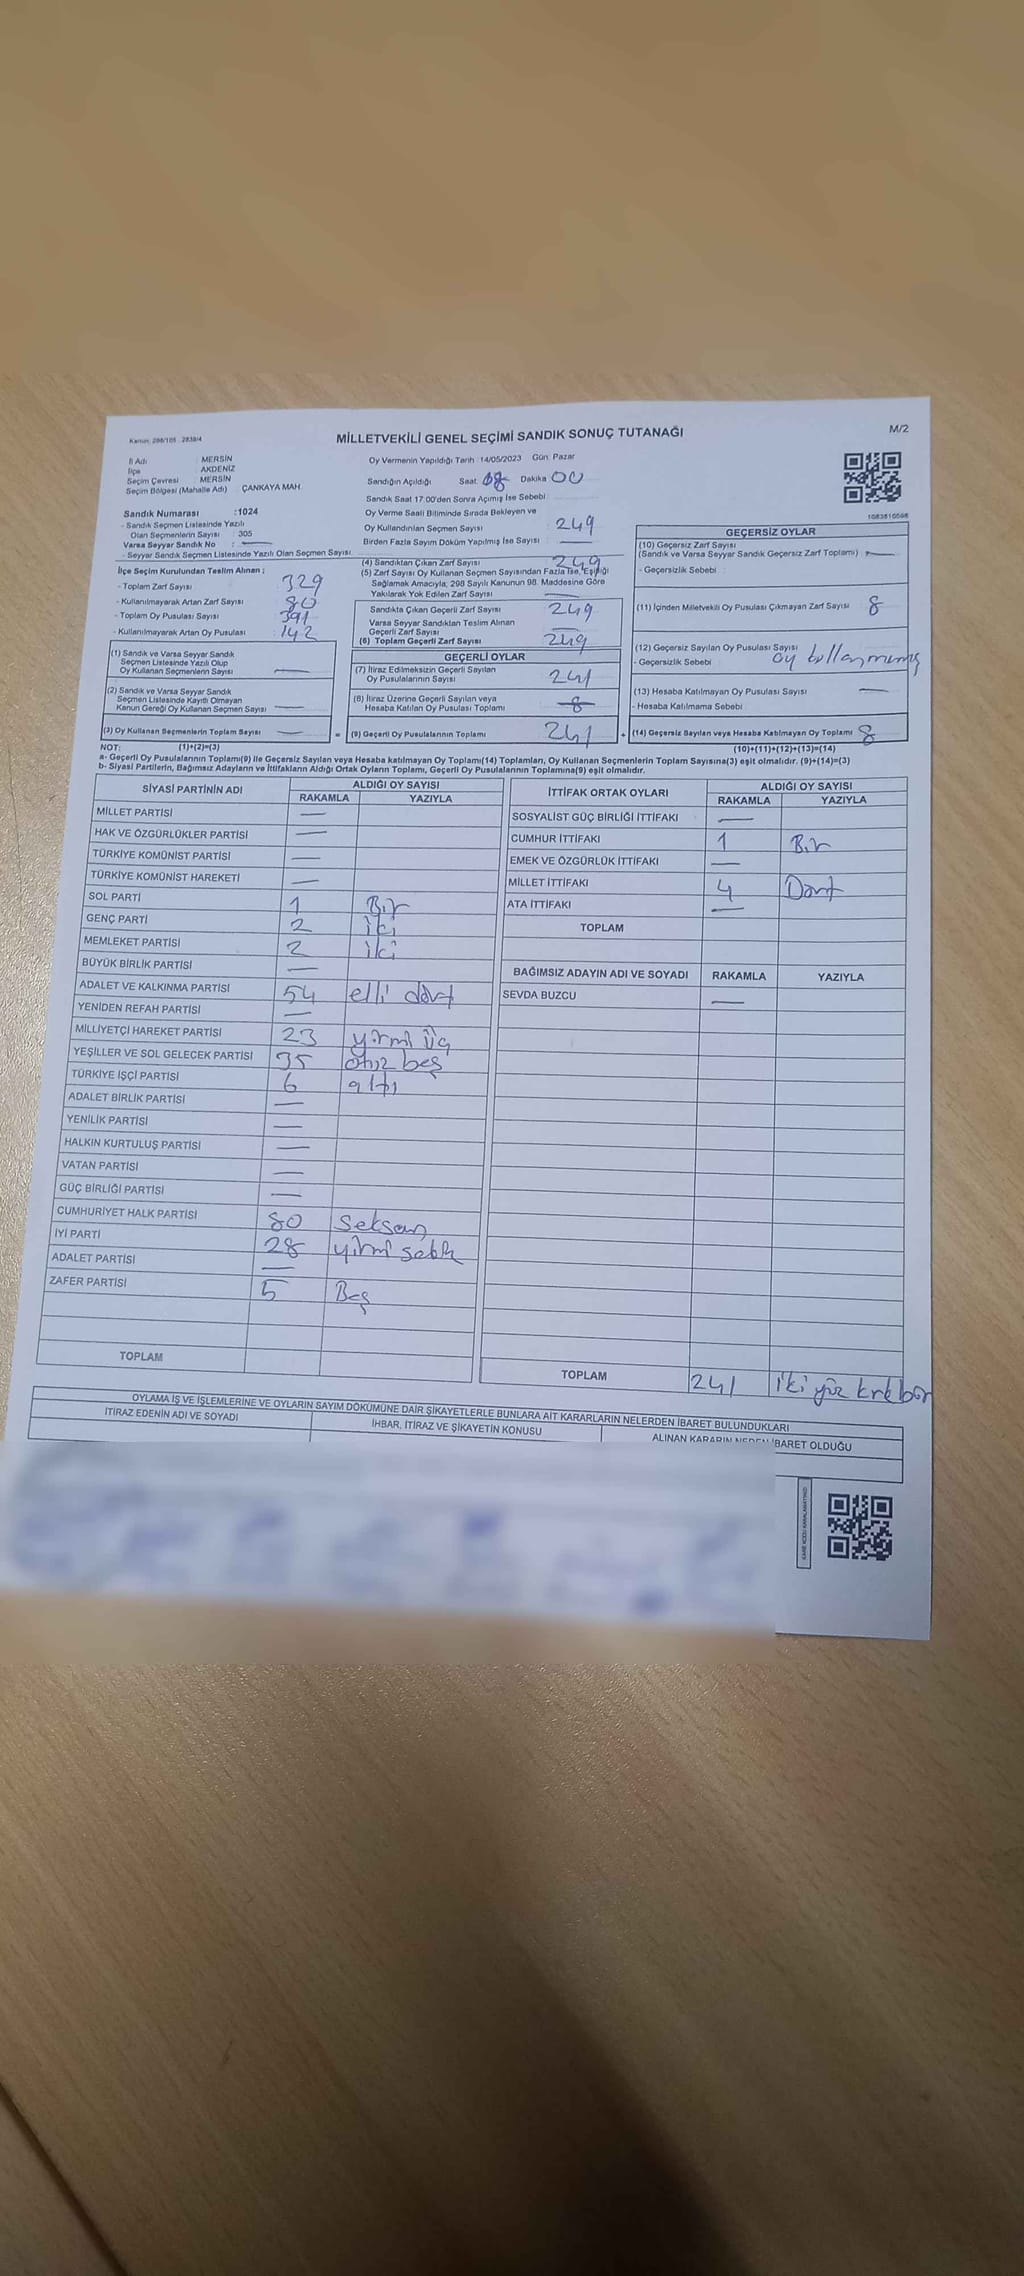 Kanun: 298/105 - 2839/4
MİLLETVEKİLİ GENEL SEÇİMİ SANDIK SONUÇ TUTANAĞI
M/2
İl Adı : MERSİN
İlçe AKDENİZ
Seçim Çevresi MERSİN
Seçim Bölgesi (Mahalle Adı) ÇANKAYA MAH.
Sandık Numarası :1024
- Sandık Seçmen Listesinde Yazılı
Olan Seçmenlerin Sayısı : 305
Varsa Seyyar Sandık No : —
- Seyyar Sandık Seçmen Listesinde Yazılı Olan Seçmen Sayısı
Oy Vermenin Yapıldığı Tarih :14/05/2023 Gün: Pazar
Sandığın Açıldığı Saat: 08 Dakika 00
Sandık Saat 17:00'den Sonra Açımış İse Sebebi
Oy Verme Saati Bitiminde Sırada Bekleyen ve
Oy Kullandırılan Seçmen Sayısı 249
Birden Fazla Sayım Döküm Yapılmış İse Sayısı : —
İlçe Seçim Kurulundan Teslim Alınan ;
- Toplam Zarf Sayısı 329
- Kullanılmayarak Artan Zarf Sayısı 80
- Toplam Oy Pusulası Sayısı 391
- Kullanılmayarak Artan Oy Pusulası 142
(1) Sandık ve Varsa Seyyar Sandık
Seçmen Listesinde Yazılı Olup
Oy Kullanan Seçmenlerin Sayısı —
(2) Sandık ve Varsa Seyyar Sandık
Seçmen Listesinde Kayıtlı Olmayan
Kanun Gereği Oy Kullanan Seçmen Sayısı —
(3) Oy Kullanan Seçmenlerin Toplam Sayısı — =
(4) Sandıktan Çıkan Zarf Sayısı 249
(5) Zarf Sayısı Oy Kullanan Seçmen Sayısından Fazla İse, Eşitliği
Sağlamak Amacıyla; 298 Sayılı Kanunun 98. Maddesine Göre
Yakılarak Yok Edilen Zarf Sayısı —
Sandıkta Çıkan Geçerli Zarf Sayısı 249
Varsa Seyyar Sandıktan Teslim Alınan
Geçerli Zarf Sayısı —
(6) Toplam Geçerli Zarf Sayısı 249
GEÇERLİ OYLAR
(7) İtiraz Edilmeksizin Geçerli Sayılan
Oy Pusulalarının Sayısı 241
(8) İtiraz Üzerine Geçerli Sayılan veya
Hesaba Katılan Oy Pusulası Toplamı 8
(9) Geçerli Oy Pusulalarının Toplamı 241 +
1083810598
GEÇERSİZ OYLAR
(10) Geçersiz Zarf Sayısı
(Sandık ve Varsa Seyyar Sandık Geçersiz Zarf Toplamı) —
- Geçersizlik Sebebi :
(11) İçinden Milletvekili Oy Pusulası Çıkmayan Zarf Sayısı 8
(12) Geçersiz Sayılan Oy Pusulası Sayısı
- Geçersizlik Sebebi oy kullanmamış
(13) Hesaba Katılmayan Oy Pusulası Sayısı —
- Hesaba Katılmama Sebebi
(14) Geçersiz Sayılan veya Hesaba Katılmayan Oy Toplamı 8
NOT: (1)+(2)=(3) (10)+(11)+(12)+(13)=(14)
a- Geçerli Oy Pusulalarının Toplamı(9) ile Geçersiz Sayılan veya Hesaba katılmayan Oy Toplamı(14) Toplamları, Oy Kullanan Seçmenlerin Toplam Sayısına(3) eşit olmalıdır. (9)+(14)=(3)
b- Siyasi Partilerin, Bağımsız Adayların ve İttifakların Aldığı Ortak Oyların Toplamı, Geçerli Oy Pusulalarının Toplamına(9) eşit olmalıdır.
SİYASİ PARTİNİN ADI ALDIĞI OY SAYISI
RAKAMLA YAZIYLA
MİLLET PARTİSİ —
HAK VE ÖZGÜRLÜKLER PARTİSİ —
TÜRKİYE KOMÜNİST PARTİSİ —
TÜRKİYE KOMÜNİST HAREKETİ —
SOL PARTİ 1 Bir
GENÇ PARTİ 2 iki
MEMLEKET PARTİSİ 2 iki
BÜYÜK BİRLİK PARTİSİ —
ADALET VE KALKINMA PARTİSİ 54 elli dört
YENİDEN REFAH PARTİSİ —
MİLLİYETÇİ HAREKET PARTİSİ 23 yirmi üç
YEŞİLLER VE SOL GELECEK PARTİSİ 35 otuz beş
TÜRKİYE İŞÇİ PARTİSİ 6 altı
ADALET BİRLİK PARTİSİ —
YENİLİK PARTİSİ —
HALKIN KURTULUŞ PARTİSİ —
VATAN PARTİSİ —
GÜÇ BİRLİĞİ PARTİSİ —
CUMHURİYET HALK PARTİSİ 80 seksan
İYİ PARTİ 28 yirmi sekiz
ADALET PARTİSİ —
ZAFER PARTİSİ 5 Beş
TOPLAM
İTTİFAK ORTAK OYLARI ALDIĞI OY SAYISI
RAKAMLA YAZIYLA
SOSYALİST GÜÇ BİRLİĞİ İTTİFAKI —
CUMHUR İTTİFAKI 1 Bir
EMEK VE ÖZGÜRLÜK İTTİFAKI —
MİLLET İTTİFAKI 4 Dört
ATA İTTİFAKI —
TOPLAM
BAĞIMSIZ ADAYIN ADI VE SOYADI RAKAMLA YAZIYLA
SEVDA BUZCU —
TOPLAM 241 iki yüz kırkbir
OYLAMA İŞ VE İŞLEMLERİNE VE OYLARIN SAYIM DÖKÜMÜNE DAİR ŞİKAYETLERLE BUNLARA AİT KARARLARIN NELERDEN İBARET BULUNDUKLARI
İTİRAZ EDENİN ADI VE SOYADI İHBAR, İTİRAZ VE ŞİKAYETİN KONUSU ALINAN KARARIN NEDEN İBARET OLDUĞU